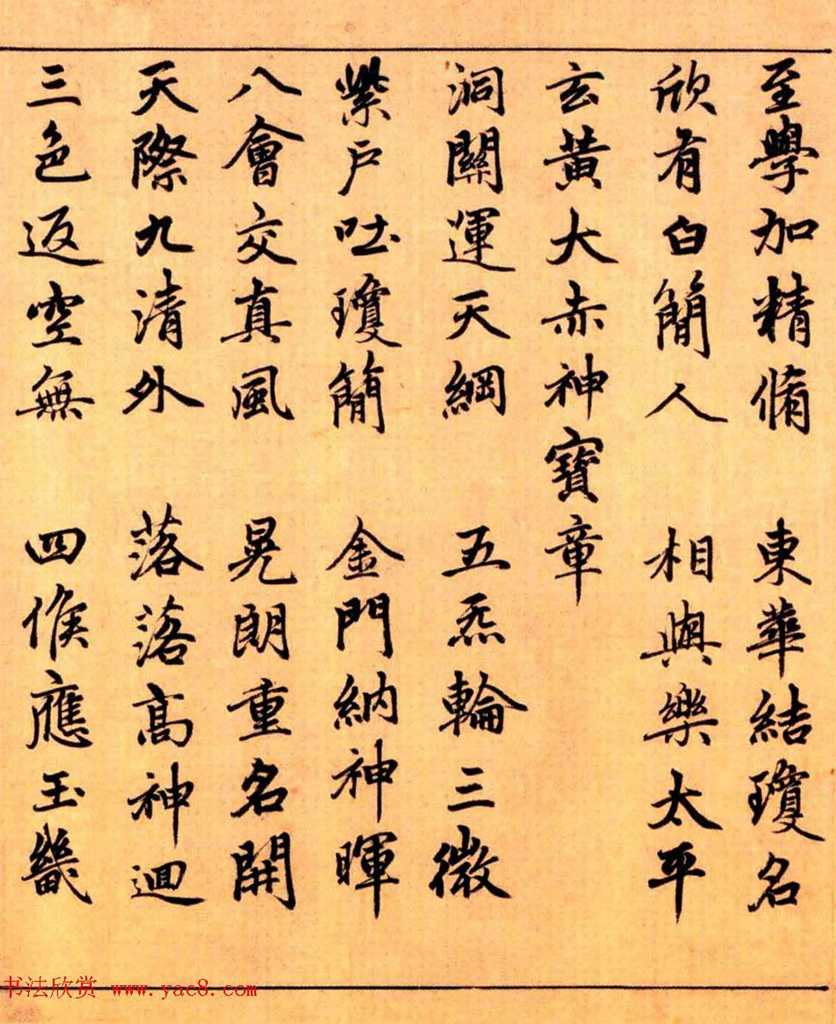 至學加精脩 東華結瓊名
欣有白簡人 相與樂太平
玄黃大赤神寶章
洞關運天綱 五炁輪三微
紫戶吐瓊簡 金門納神暉
八會交真風 晃朗重名開
天際九清外 落落高神迴
三色返空無 四候應玉畿
书法欣赏 www.yac8.com